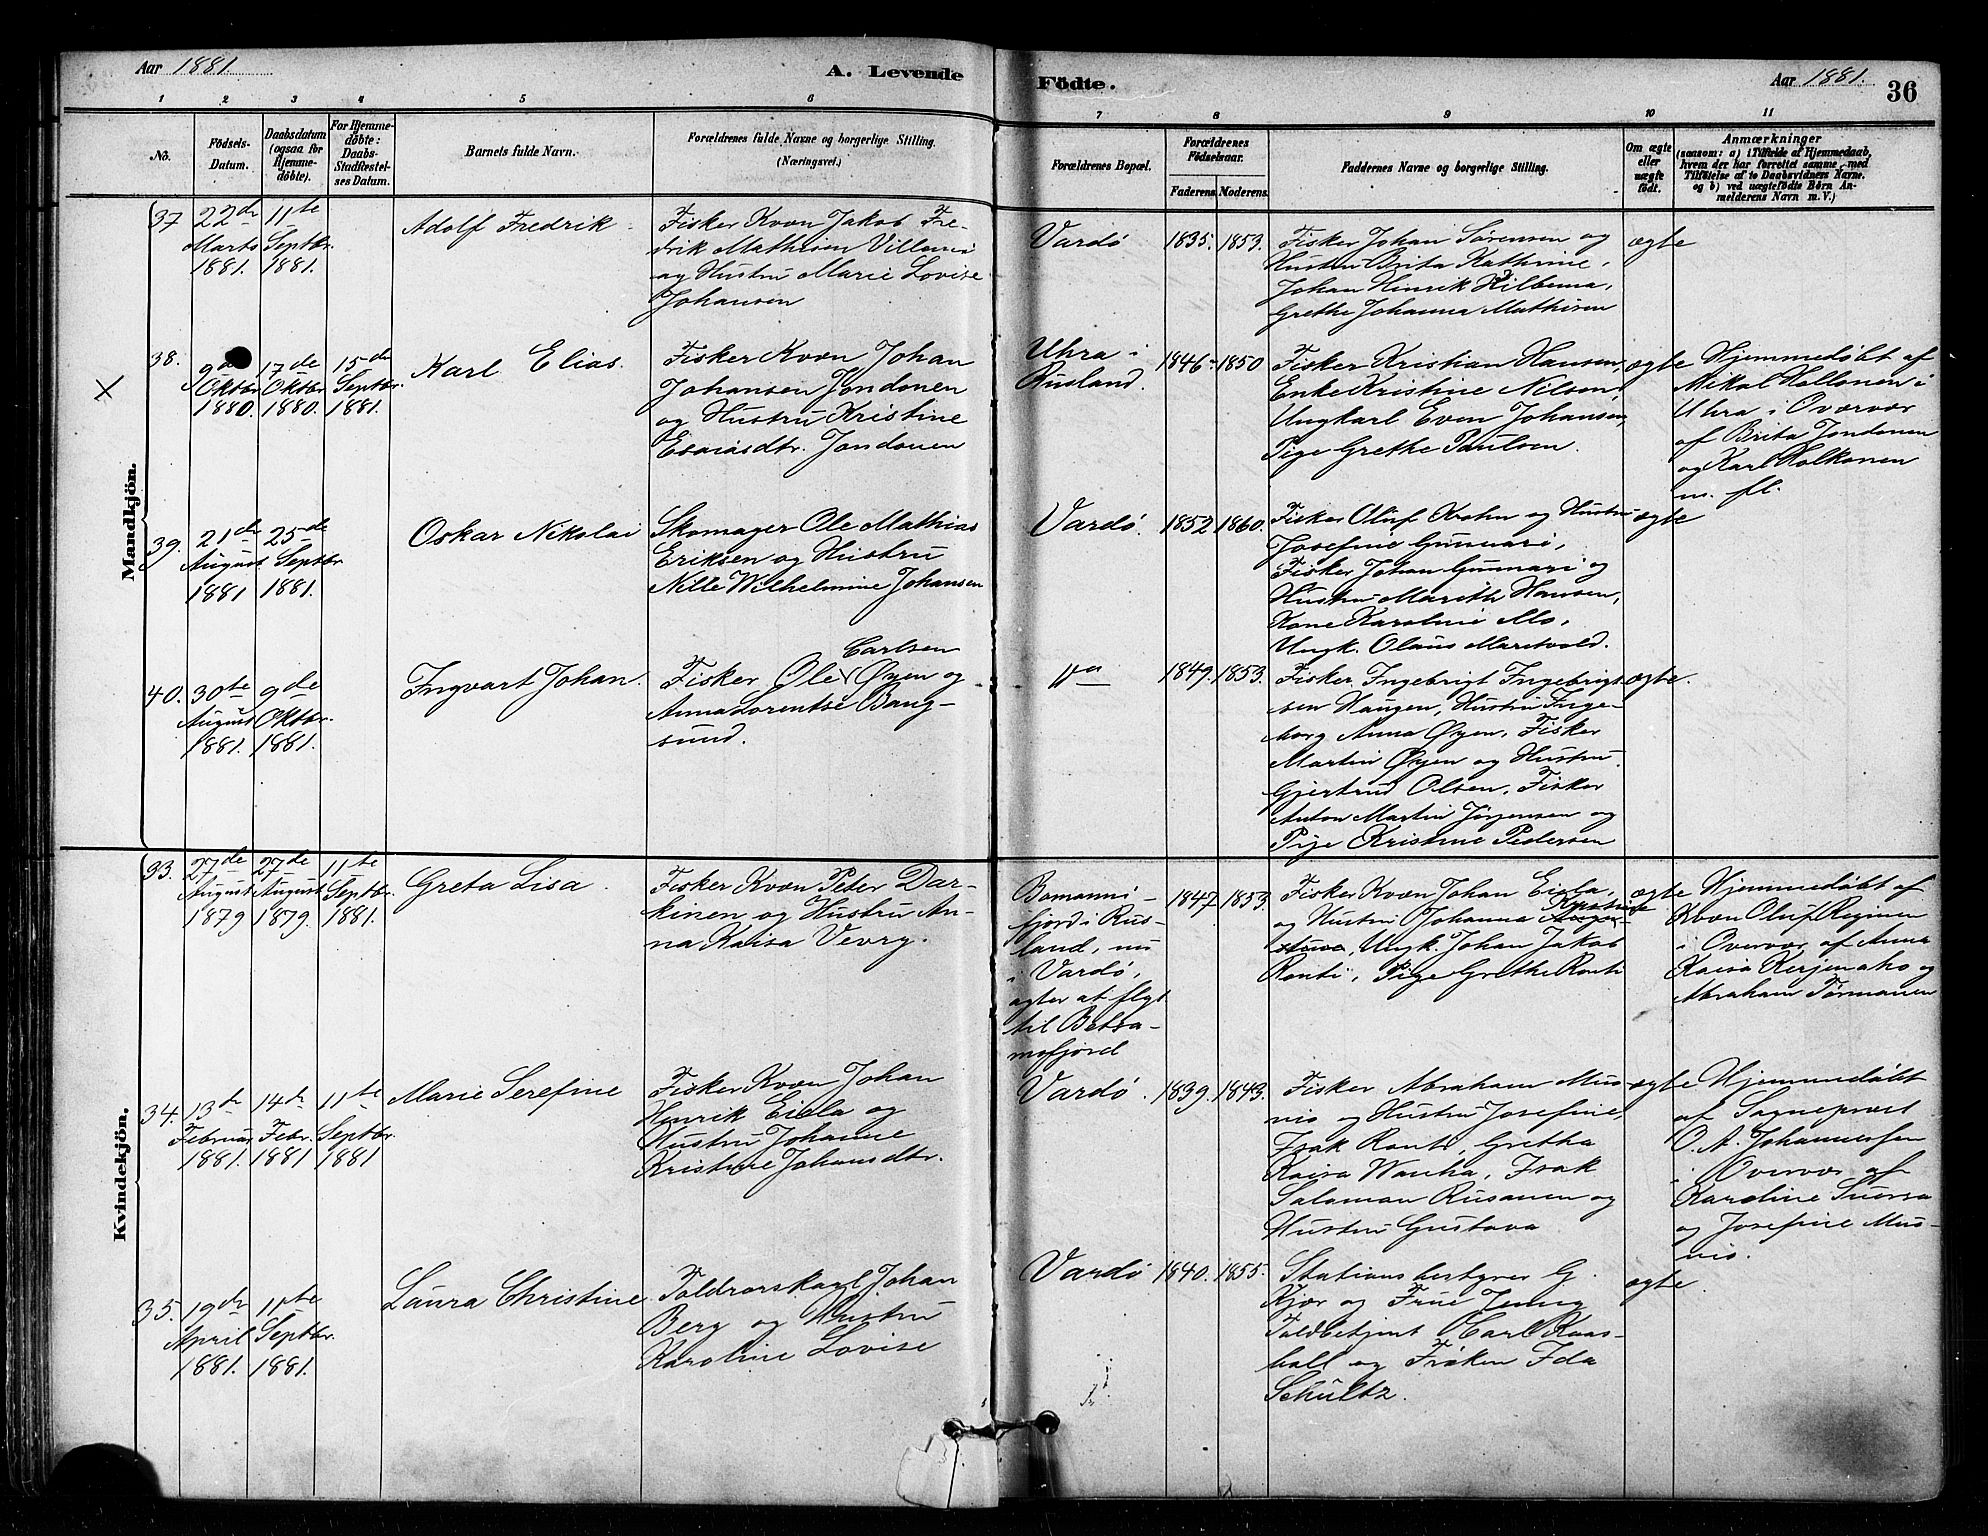 Aar 1881.
A. Levende
Födte.
Aar 1881.
36
1 2 3 4 5 6 7 8 9 10 11
No.
Födsels-
Datum.
Daabsdatum
(ogsaa for
Hjemme-
döbte).
For Hjemme-
döbte:
Daabs-
Stadfæstel-
ses Datum.
Barnets fulde Navn.
Forældrenes fulde Navne og borgerlige Stilling.
(Næringsvei.)
Forældrenes Bopæl.
Forældrenes
Födselsaar.
Faderens. Moderens.
Faddernes Navne og borgerlige Stilling.
Om ægte
eller
uægte
födt.
Anmærkninger
(saasom: a) i Tilfælde af Hjemmedaab,
hvem der har forrettet samme, med
Tilföielse af to Daabsvidners Navne,
og b) ved uægtefödte Börn An-
melderens Navn m. V.)
Mandkjön.
37
22de
Marts
1881.
11te
Septbr.
1881.
Adolf Fredrik.
Fisker Kvæn Jakob Fre-
drik Mathisen
og Hustru Marie Lovise
Johansen
Vardø
1835. 1853.
Fisker Johan Sørensen og
Hustru Brita Kathrine,
Johan Hinrik
Grethe Johanna Mathisen
ægte
38.
9de
Oktbr.
1880.
17de
Oktbr.
1880.
15de
Septbr.
1881.
Karl Elias.
Fisker Kvæn Johan
Johansen Jondonen
og Hustru Kristine
Esaiasdtr. Jondonen
Uhra i
Rusland.
1846- 1850
Fisker Kristian Hansen,
Enke Kristine Nilsen,
Ungkarl Even Johansen,
Pige Grethe Paulsen.
ægte
Hjemmedøbt af
Mikal Hollonen i
Uhra i Overvær
af Brita Jondonen
og Karl Holkonen
m. fl.
39.
21de
August
1881
25de
Septbr.
1881.
Oskar Nikolai
Skomager Ole Mathias
Eriksen og Hustru
Nille Wilhelmine Johansen
Vardø.
1852 1860.
Fisker Oluf Krohn og Hustru
Josefine Gunnari,
Fisker Johan Gunnari og
Hustru Marith Hansen,
Kone Karoline Mo,
Ungk. Olaus Maretvold.
ægte
40.
30te
August
1881.
9de
Oktbr.
1881.
Ingvart Johan.
Carlsen
Fisker Ole Øyen og
Anna Lorentse Bang-
sund.
1849. 1853.
Fisker Ingebrigt Ingebrigt-
sen Haugen, Hustru Inge-
borg Anna Øyen, Fisker
Martin Øyen og Hustru
Gjertrud Olsen, Fisker
Anton Martin Jörgensen og
Pige Kristine Pedersen
ægte.
Kvindekjön.
33.
27de
August
1879
27de
August
1879.
11te
Septbr.
1881.
Greta Lisa.
Fisker Kvæn Peter Dar-
kinen og Hustru An-
na Kaisa Vevry.
Bomanni-
fjord i Rus-
land, nu
i Vardø,
agter at flyt
til Betsa-
mofjord
1847 1853.
Fisker Kvæn Johan Eiela,
og Hustru Johanna Kristine
Ungk. Johan Jakob
Ronti, Pige Grethe Ronti
ægte
Hjemmedøbt af
Kvæn Oluf Reginen
i Overvær af Anna
Kaisa Kerjenaho og
Abraham Törmanen
34.
13de
Februar
1881.
14de
Febr.
1881
11te
Septbr.
1881
Marie Serefine
Fisker Kvæn Johan
Henrik Eiela og
Hustru Johanne
Kristine Johansdtr.
Vardø.
1839. 1843.
Fisker Abraham Mus-
nio og Hustru Josefine,
Isak Ronti, Gretha
Kaisa Wanha, Isak
Salamon Rusanen og
Hustru Gustava
ægte
Hjemmedøbt
af Sognepræst
O. A. Johannessen
i Overvær af
Karoline Suorsa
og Josefine Mus-
nio.
35.
19de
April
1881.
11te
Septbr.
1881.
Laura Christine.
Toldrorskarl Johan
Berg og Hustru
Karoline Lovise
Vardø
1840. 1855.
Stationsbestyrer G.
Kjær og Frue Jenny
Toldbetjent Carl Kaas-
ball og Frøken Ida
Schultz.
ægte.